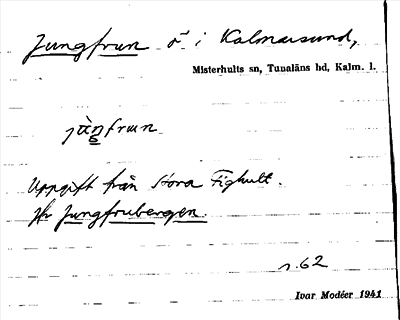 Jungfrun ö i Kalmarsund,
Misterhults sn, Tunaläns hd, Kalm. l.
jùŋfrun
Uppgift från Stora Fighult.
Jfr Jungfrubergen.
s. 62
Ivar Modéer 1941